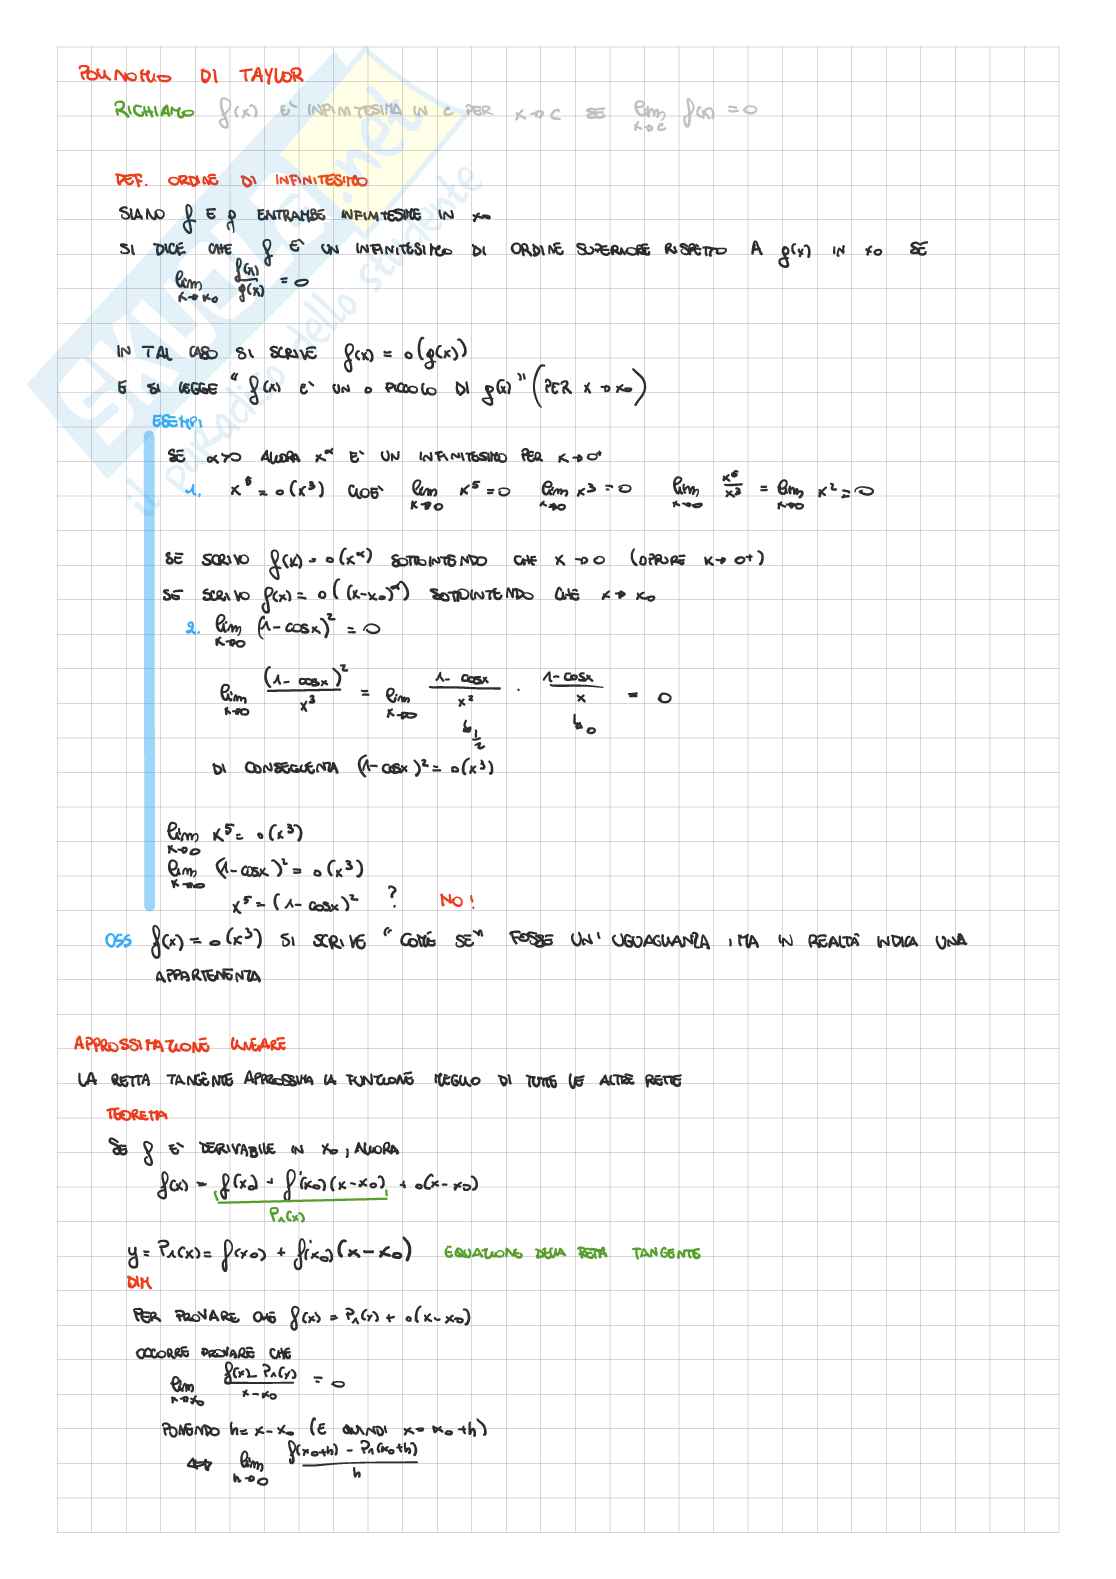 POLINOMIO DI TAYLOR
RICHIAMO f(x) E' INFINITESIMA IN C PER x→C SE lim x→C f(x) = 0
DEF. ORDINE DI INFINITESIMO
SIANO f E g ENTRAMBE INFINITESIME IN x₀
SI DICE CHE f E' UN INFINITESIMO DI ORDINE SUPERIORE RISPETTO A g(x) IN x₀ SE
lim x→x₀ f(x)/g(x) = 0
IN TAL CASO SI SCRIVE f(x) = o(g(x))
E SI LEGGE "f(x) E' UN O PICCOLO DI g(x)" (PER x→x₀)
ESEMPI
SE α>0 ALLORA x^α E' UN INFINITESIMO PER x→0⁺
1. x⁵ = o(x³) CIOE' lim x→0 x⁵ = 0 lim x→0 x³ = 0 lim x→0 x⁵/x³ = lim x→0 x² = 0
SE SCRIVO f(x) = o(x^α) SOTTOINTENDO CHE x→0 (OPPURE x→0⁺)
SE SCRIVO f(x) = o((x-x₀)^α) SOTTOINTENDO CHE x→x₀
2. lim x→0 (1-cosx)² = 0
lim x→0 (1-cosx)²/x³ = lim x→0 1-cosx/x² · 1-cosx/x = 0
↳ 1/2 ↳ 0
DI CONSEGUENZA (1-cosx)² = o(x³)
lim x→0 x⁵ = o(x³)
lim x→0 (1-cosx)² = o(x³)
x⁵ = (1-cosx)² ? NO!
OSS f(x) = o(x³) SI SCRIVE "COME SE" FOSSE UN' UGUAGLIANZA, MA IN REALTÀ INDICA UNA
APPARTENENZA
APPROSSIMAZIONE LINEARE
LA RETTA TANGENTE APPROSSIMA LA FUNZIONE MEGLIO DI TUTTE LE ALTRE RETTE
TEOREMA
SE f E' DERIVABILE IN x₀, ALLORA
f(x) = f(x₀) + f'(x₀)(x-x₀) + o(x-x₀)
P₁(x)
y = P₁(x) = f(x₀) + f'(x₀)(x-x₀) EQUAZIONE DELLA RETTA TANGENTE
DIM
PER PROVARE CHE f(x) = P₁(x) + o(x-x₀)
OCCORRE PROVARE CHE
lim x→x₀ f(x) - P₁(x)/x-x₀ = 0
PONENDO h = x-x₀ (E QUINDI x = x₀+h)
⇔ lim h→0 f(x₀+h) - P₁(x₀+h)/h
SKUOLA.net
il paradiso dello studente